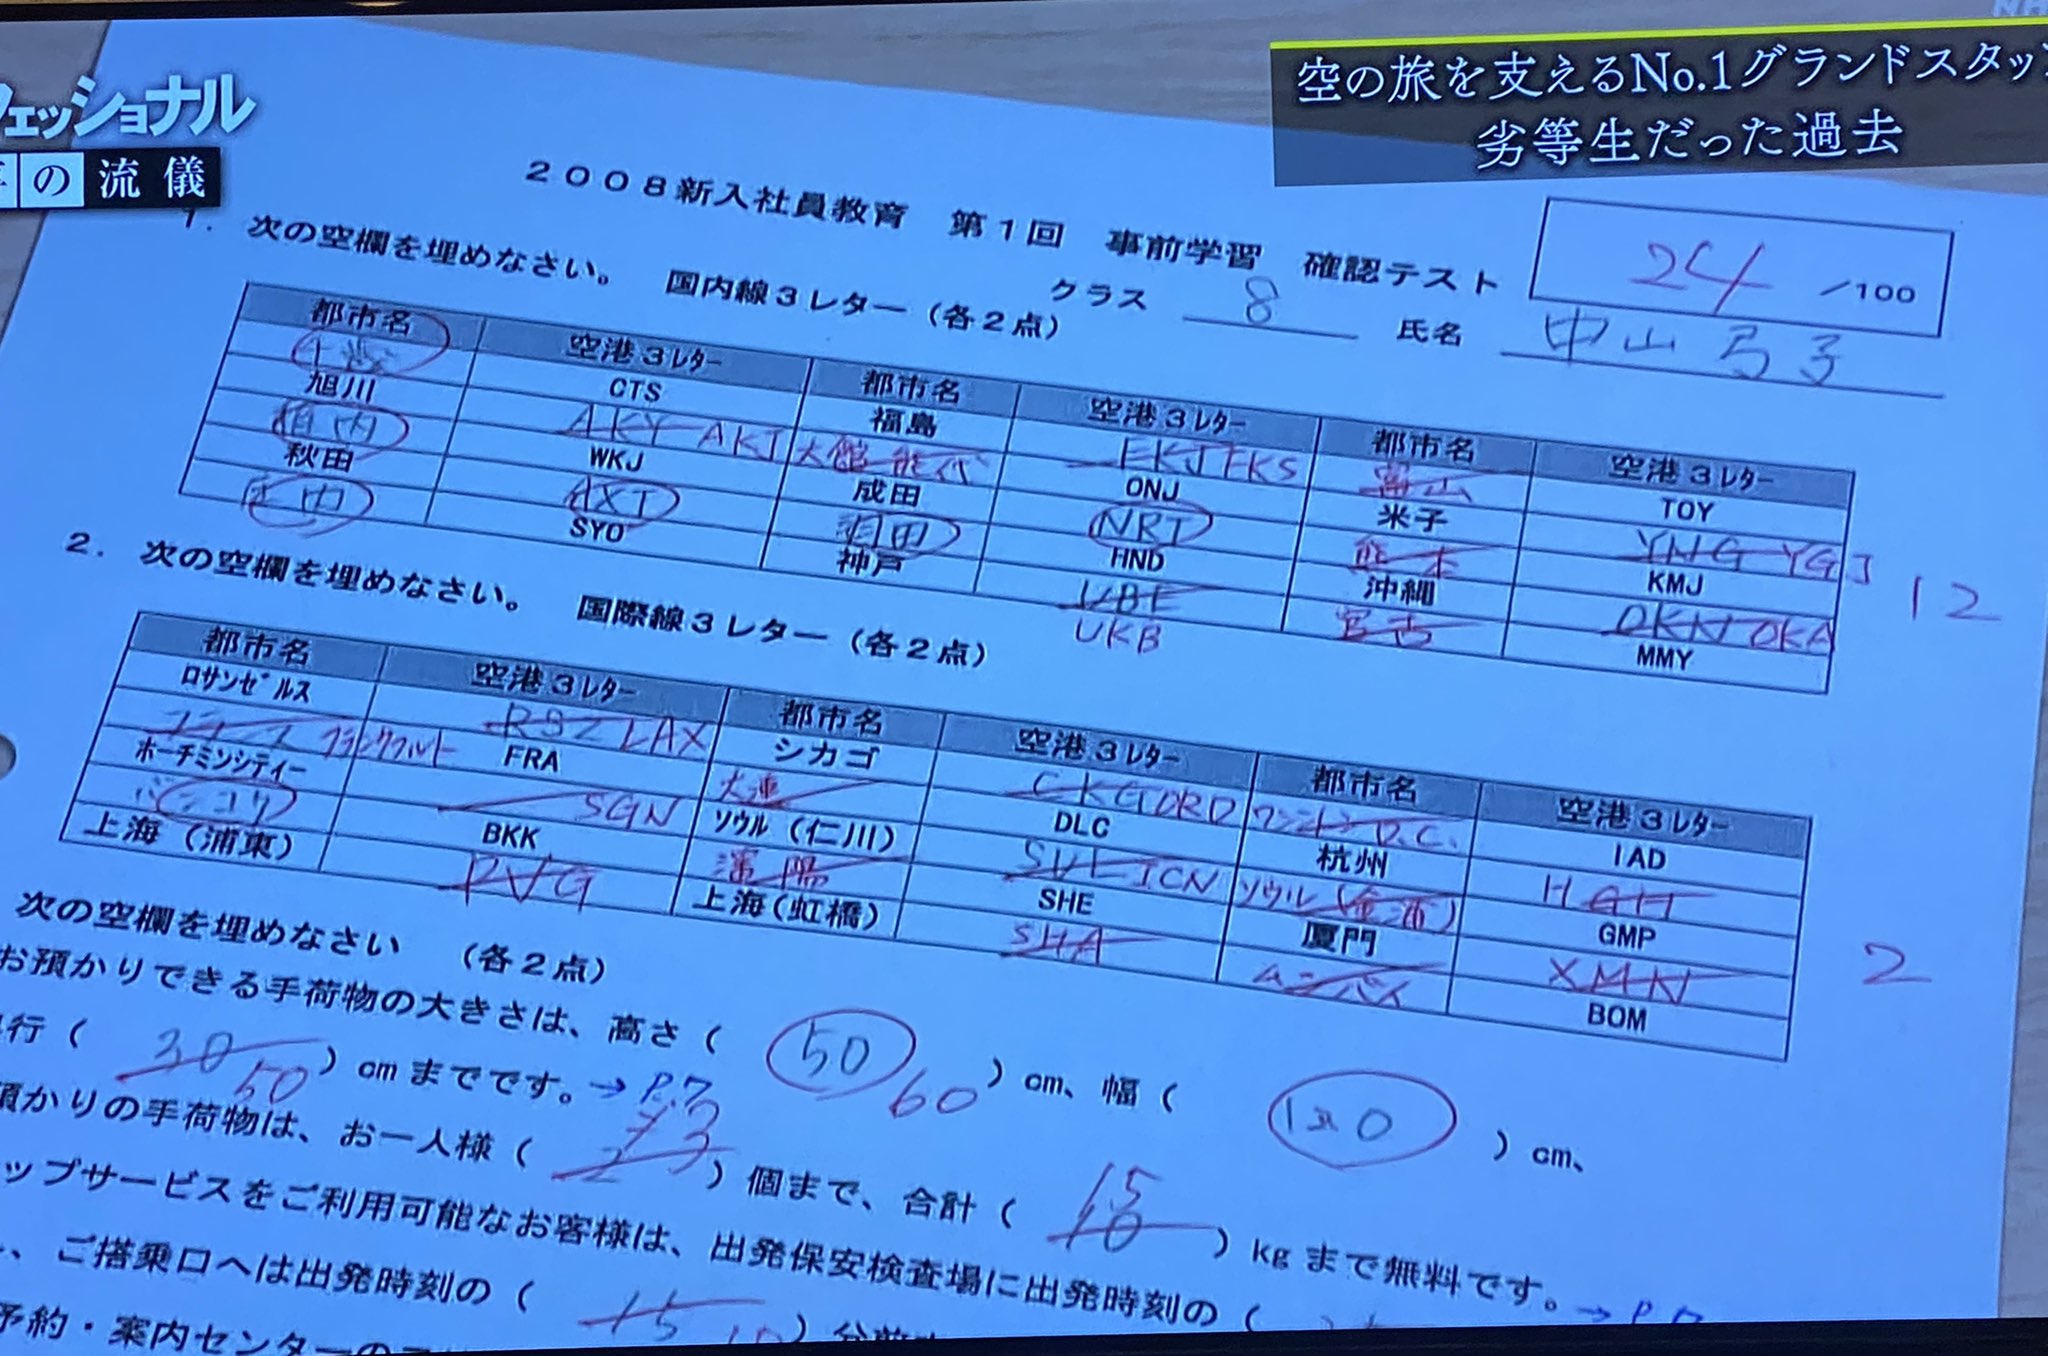 NH
フェッショナル
の流儀
空の旅を支えるNo.1グランドスタッ
劣等生だった過去
2008新入社員教育 第1回 事前学習 確認テスト
24 /100
クラス 8 氏名 中山弓子
1. 次の空欄を埋めなさい。 国内線3レター（各2点）
都市名 空港3レター 都市名 空港3レター 都市名 空港3レター
千歳 CTS 福島 FKJ FKS 富山 TOY
旭川 AKY AKJ 大館能代 ONJ 米子 YNG YGJ
稚内 WKJ 成田 NRT 熊本 KMJ
秋田 AXT 羽田 HND 沖縄 OKN OKA
庄内 SYO 神戸 KBE UKB 宮古 MMY
12
2. 次の空欄を埋めなさい。 国際線3レター（各2点）
都市名 空港3レター 都市名 空港3レター 都市名 空港3レター
ロサンゼルス LAX シカゴ CKG ORD ワシントンD.C. IAD
フランクフルト FRA 大連 DLC 杭州 HGH
ホーチミンシティー SGN ソウル（仁川） ICN ソウル（金浦） GMP
バンコク BKK 瀋陽 SHE 厦門 XMN
上海（浦東） PVG 上海（虹橋） SHA ムンバイ BOM
2
次の空欄を埋めなさい （各2点）
お預かりできる手荷物の大きさは、高さ（ 50 60 ）cm、幅（ 120 ）cm、
行（ 30 50 ）cmまでです。→P.7
預かりの手荷物は、お一人様（ 2 ）個まで、合計（ 10 15 ）kgまで無料です。→P.7
ップサービスをご利用可能なお客様は、出発保安検査場に出発時刻の（
、ご搭乗口へは出発時刻の（ 15 10 ）分前
予約・案内センターの